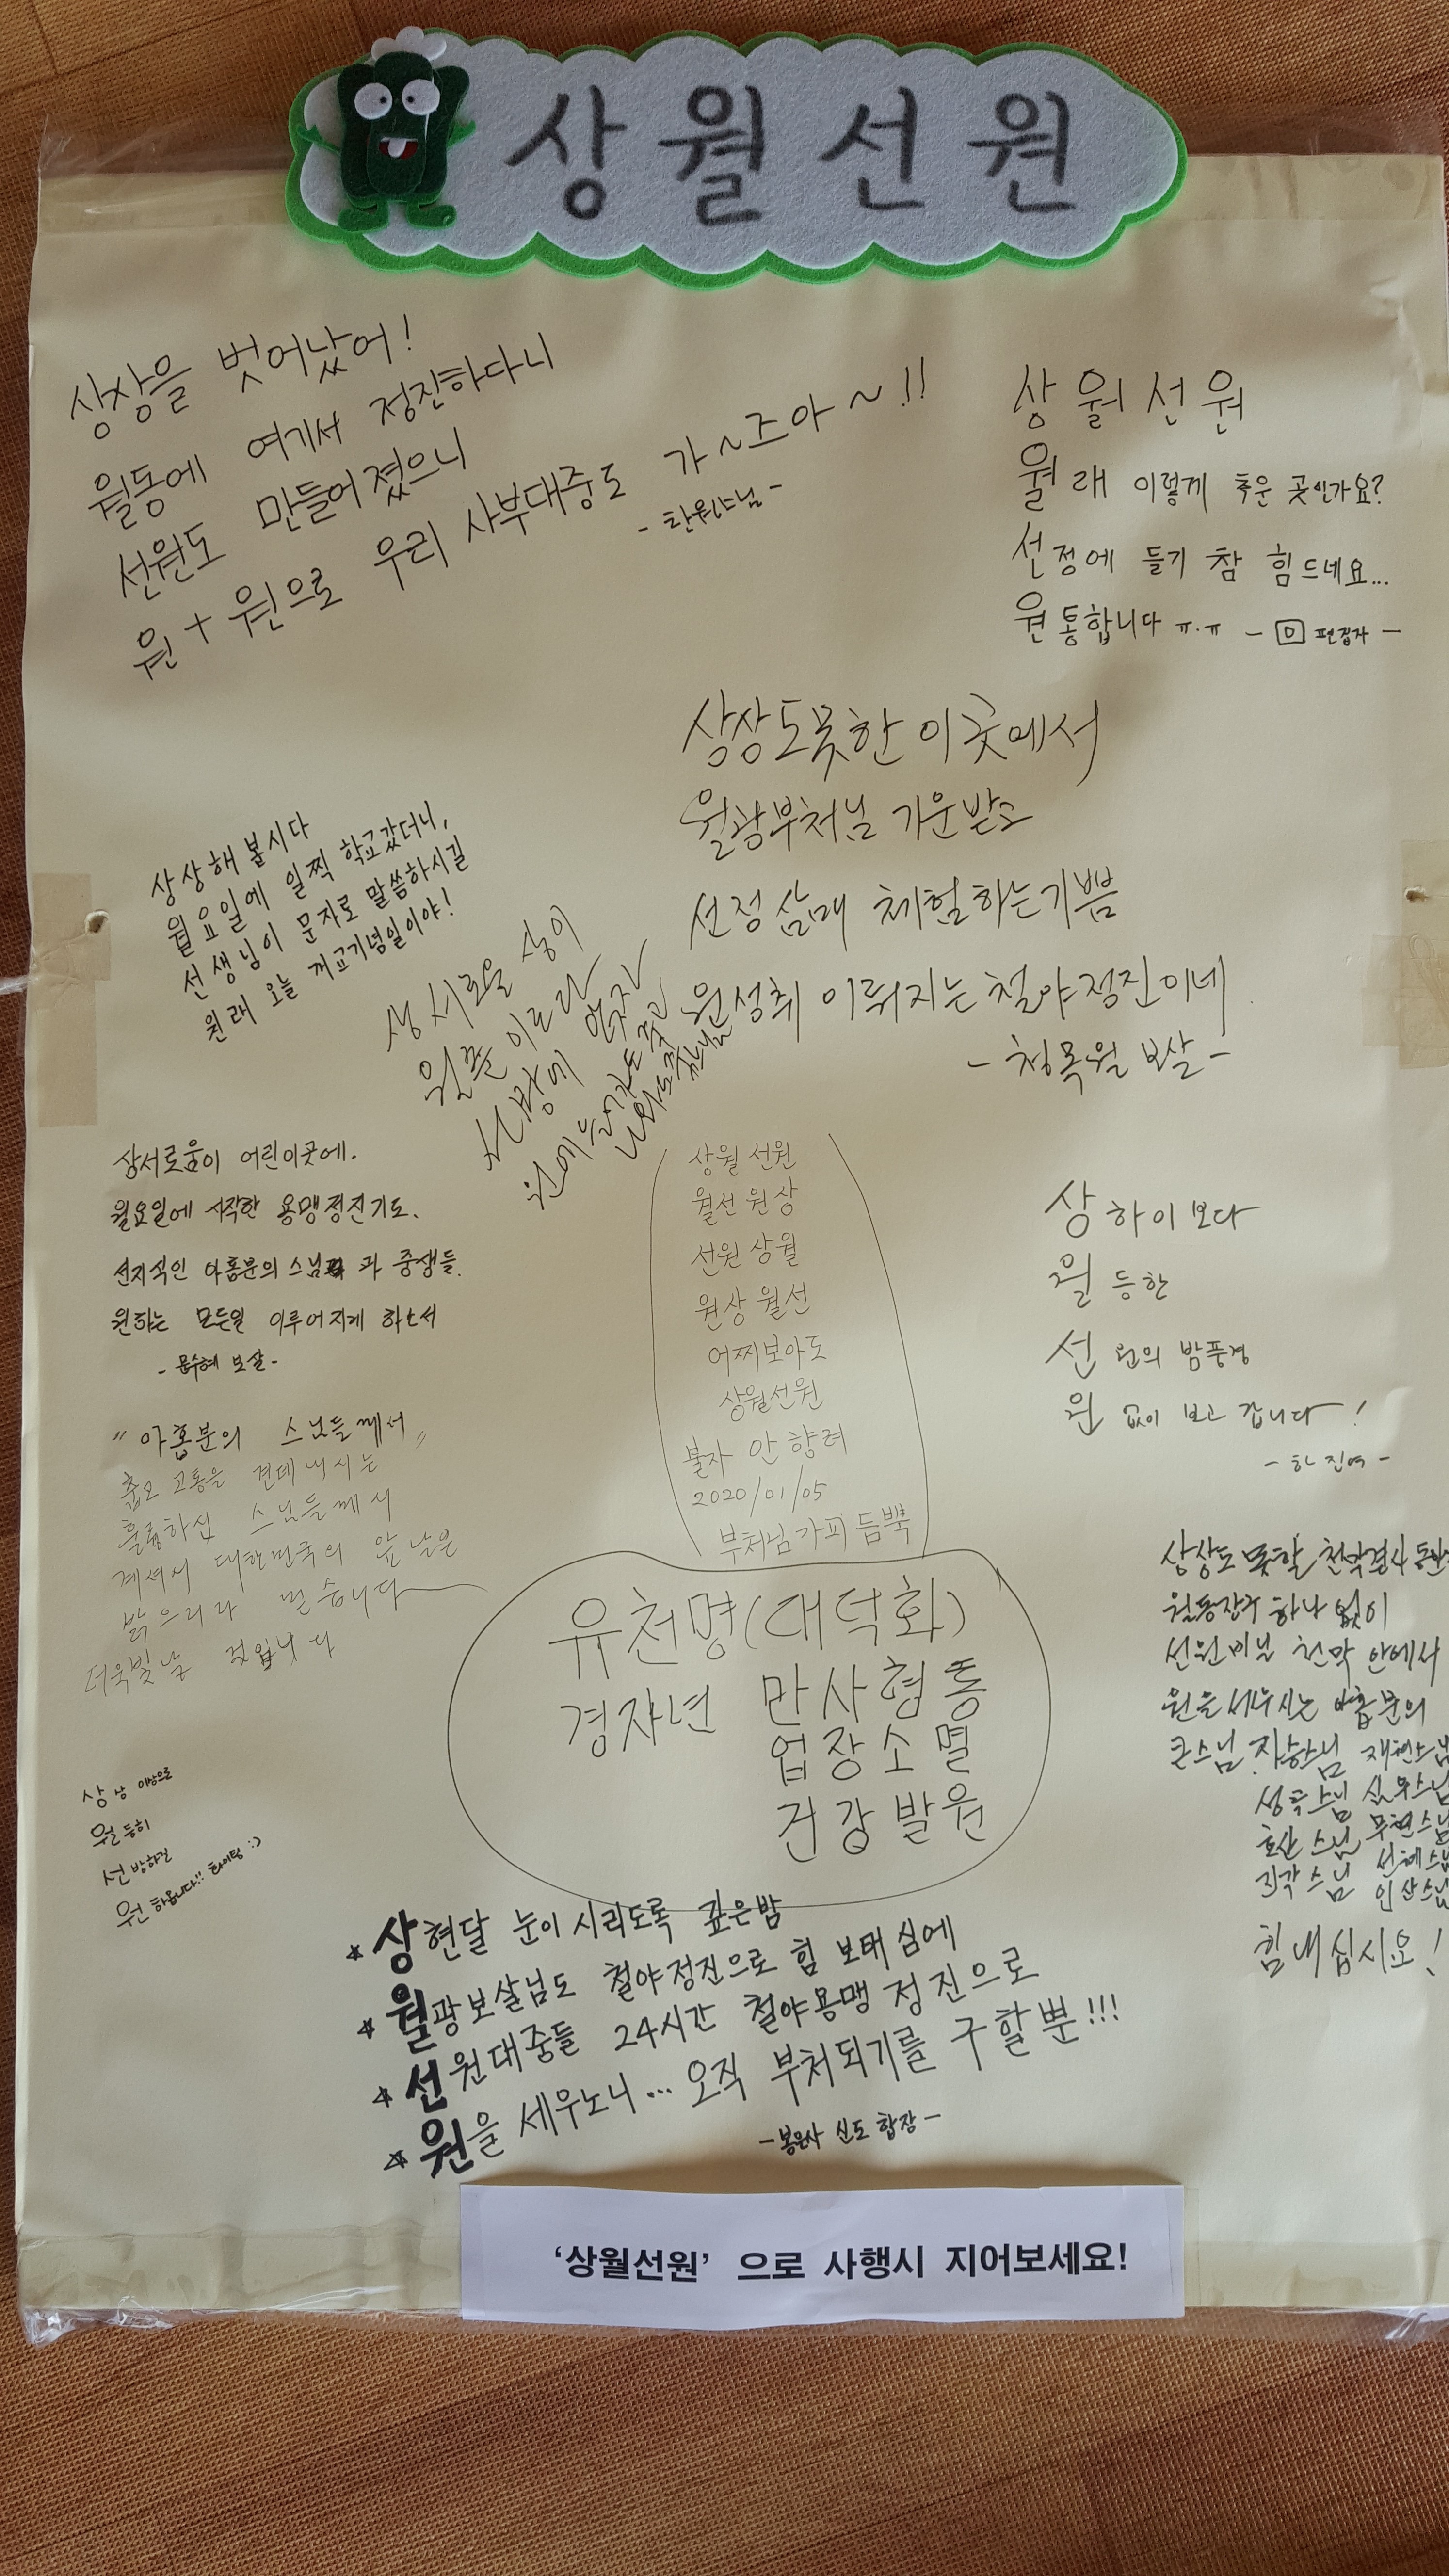 상월선원
상상을 벗어났어!
월동에 여기서 정진하다니
선원도 만들어졌으니
원+원으로 우리 사부대중도 가~즈아~!!
상월선원
월래 이렇게 추운 곳인가요?
선정에 들기 참 힘드네요...
원통합니다 ㅠ.ㅠ - 편집자 -
상상도못한 이곳에서
월광부처님 가운받고
선정삼매 체험하는기쁨
원성취 이뤄지는 철야정진이네
- 청목월 보살 -
상상해봅시다
월요일에 일찍 학교갔더니,
선생님이 문자로 말씀하시길
원래 오늘 개교기념일이야!
상서로움이
선방에 앉자
상서로움이 어린이곳에.
월요일에 시작한 용맹정진기도.
선지식인 아홉분의 스님과 중생들.
원하는 모든일 이루어지게 하소서
- 문수혜 보살 -
상월 선원
월선 원상
선원 상월
원상 월선
어찌보아도
상월선원
불자 안향려
2020/01/05
부처님가피 듬뿍
상하이보다
월등한
선원의 밤풍경
원없이 보고 갑니다!
- 하진여 -
"아홉분의 스님들께서"
춥고 고통을 견뎌내시는
훌륭하신 스님들께서
계셔서 대한민국의 앞날은
밝으리라 믿습니다
더욱빛날 것입니다
유천명(대덕화)
경자년 만사형통
업장소멸
건강발원
상상도 못할 천막결사 동안
월동장구 하나 없이
선원이닌 천막 안에서
원을 세우시는 아홉분의
큰스님. 자승스님 재현스님
성곡스님 심우스님
호산스님 무연스님
진각스님 선혜스님
인산스님
힘내십시오!
상상 이상으로
월등히
선방하길
원하옵니다!! 화이팅 :)
☆상현달 눈이 시리도록 깊은밤
☆월광보살님도 철야정진으로 힘 보태심에
☆선원대중들 24시간 철야용맹 정진으로
☆원을 세우노니... 오직 부처되기를 구할뿐!!!
- 봉은사 신도 합장 -
'상월선원' 으로 사행시 지어보세요!